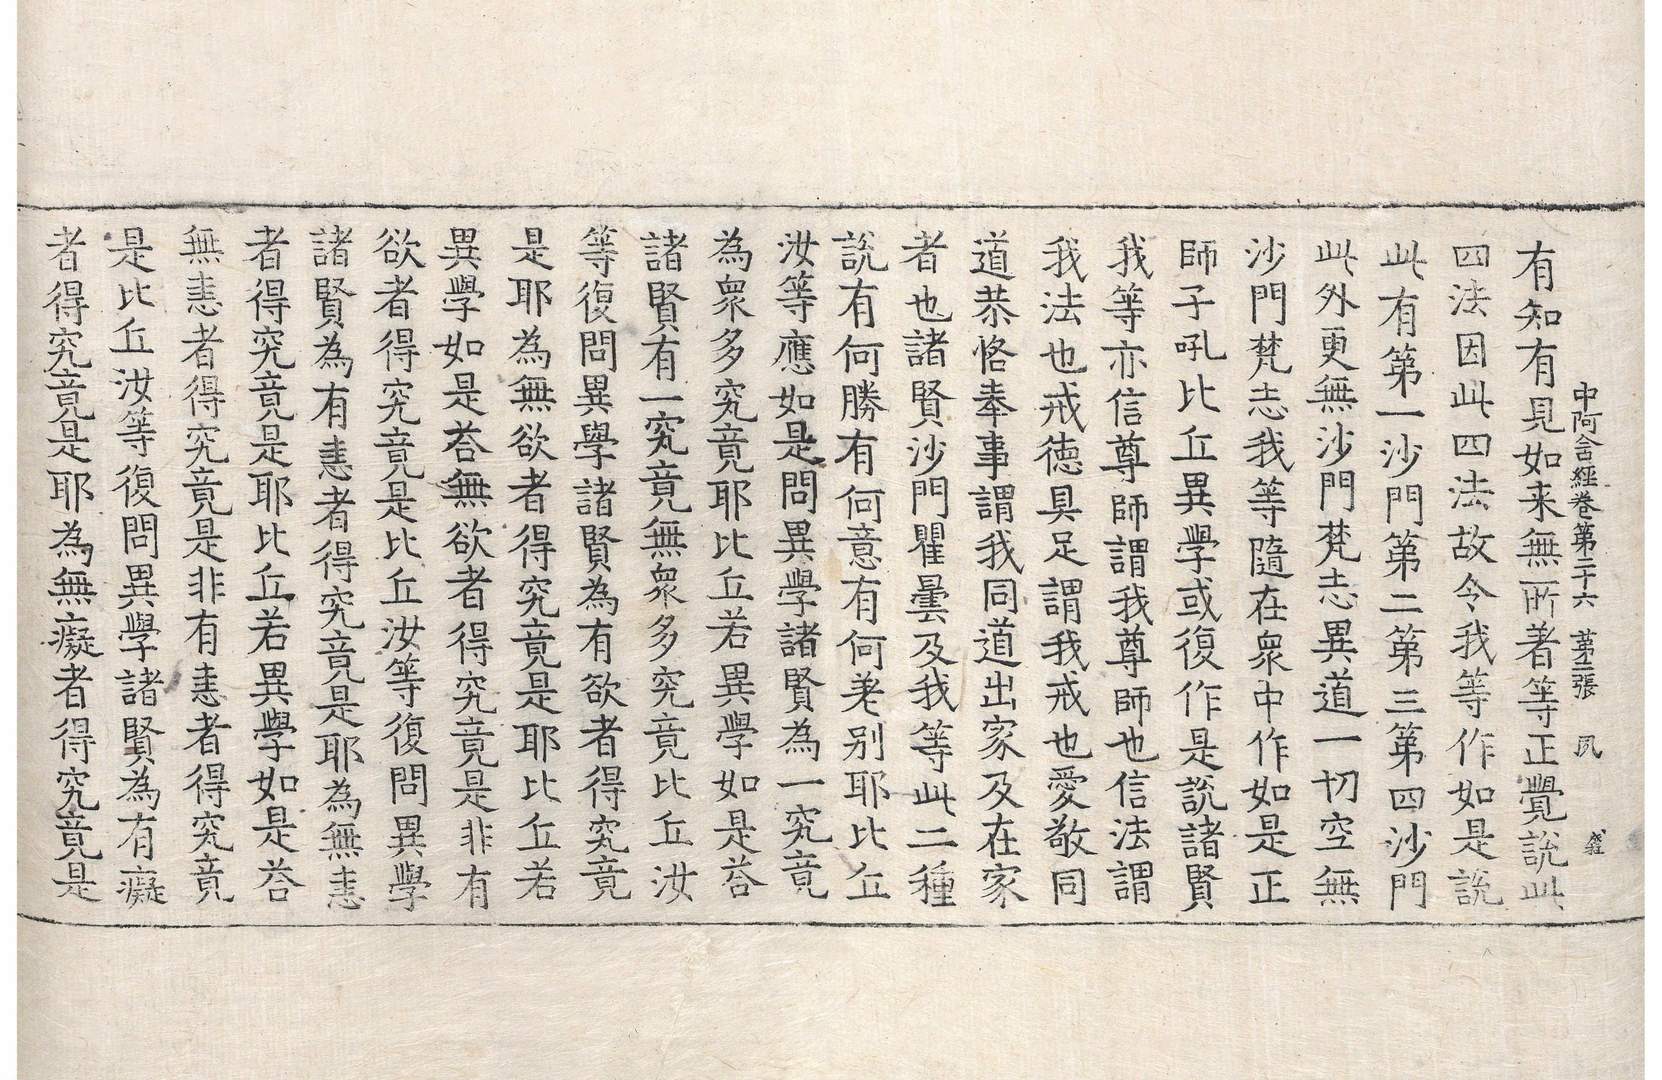 中阿含經卷第二十六 苐三張 夙
有知有見如来無所著等正覺說此
四法因此四法故令我等作如是說
此有第一沙門第二第三第四沙門
此外更無沙門梵志異道一切空無
沙門梵志我等隨在衆中作如是正
師子吼比丘異學或復作是說諸賢
我等亦信尊師謂我尊師也信法謂
我法也戒徳具足謂我戒也愛敬同
道恭恪奉事謂我同道出家及在家
者也諸賢沙門瞿曇及我等此二種
說有何勝有何意有何差別耶比丘
汝等應如是問異學諸賢為一究竟
為衆多究竟耶比丘若異學如是荅
諸賢有一究竟無衆多究竟比丘汝
等復問異學諸賢為有欲者得究竟
是耶為無欲者得究竟是耶比丘若
異學如是荅無欲者得究竟是非有
欲者得究竟是比丘汝等復問異學
諸賢為有恚者得究竟是耶為無恚
者得究竟是耶比丘若異學如是荅
無恚者得究竟是非有恚者得究竟
是比丘汝等復問異學諸賢為有癡
者得究竟是耶為無癡者得究竟是